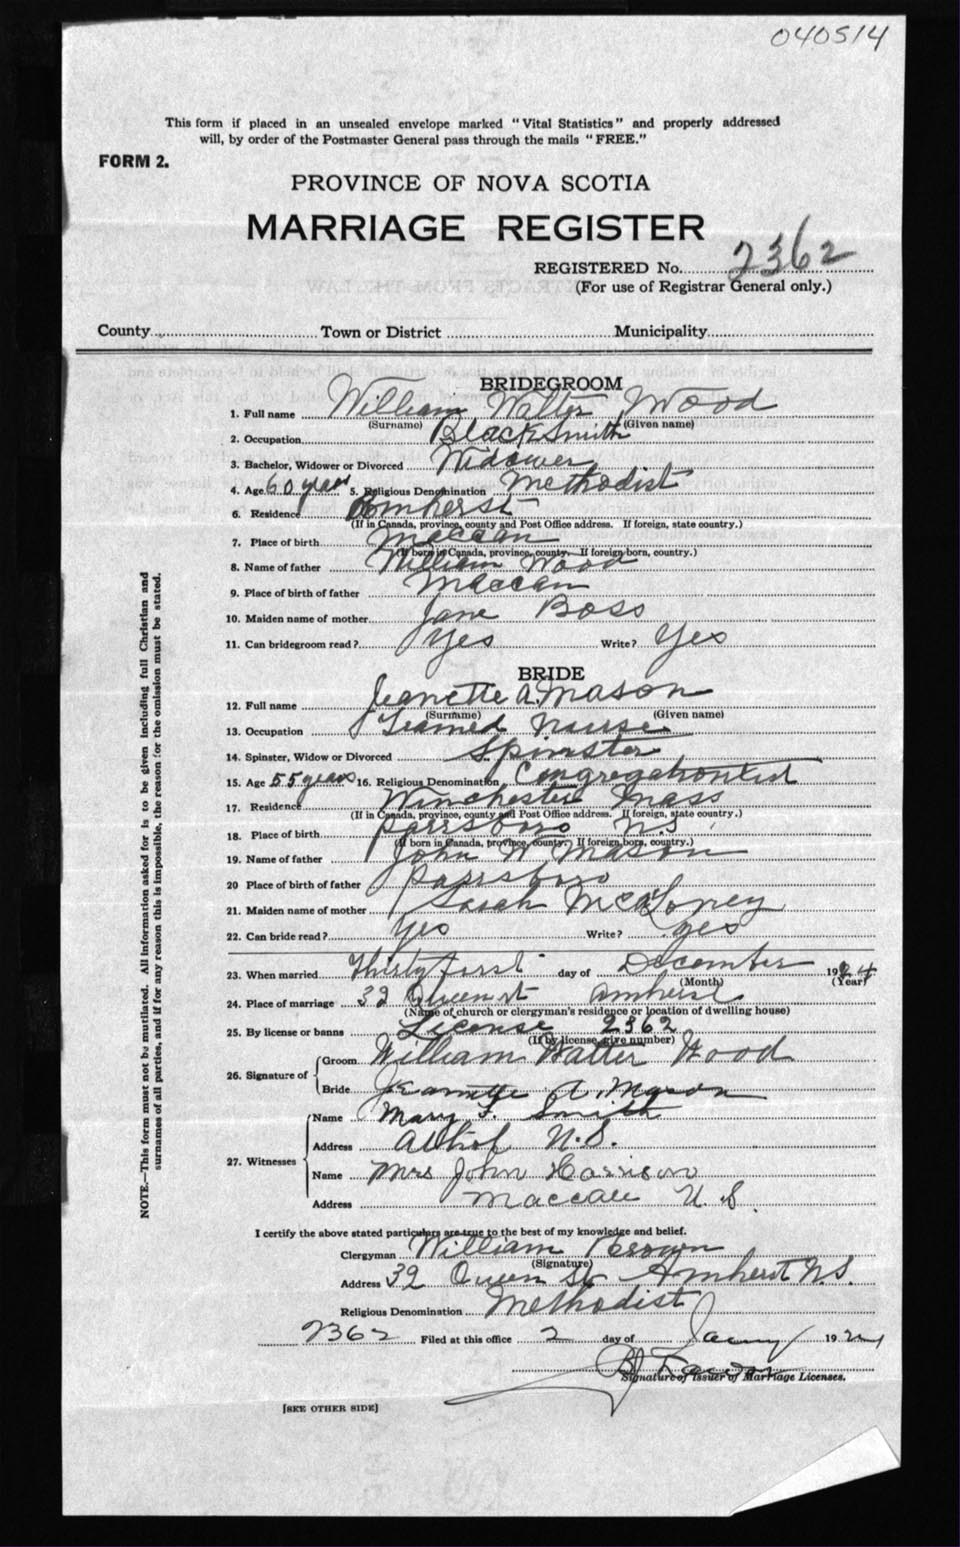 040514
This form if placed in an unsealed envelope marked "Vital Statistics" and properly addressed
will, by order of the Postmaster General pass through the mails "FREE."
FORM 2.
PROVINCE OF NOVA SCOTIA
MARRIAGE REGISTER
REGISTERED No. 2362
(For use of Registrar General only.)
County Town or District Municipality
BRIDEGROOM
1. Full name William Walter Wood
(Surname) (Given name)
2. Occupation Blacksmith
3. Bachelor, Widower or Divorced Widower
4. Age 60 years 5. Religious Denomination Methodist
6. Residence Amherst
(If in Canada, province, county and Post Office address. If foreign, state country.)
7. Place of birth Maccan
(If born in Canada, province, county. If foreign born, country.)
8. Name of father William Wood
9. Place of birth of father Maccan
10. Maiden name of mother Jane Boss
11. Can bridegroom read? Yes Write? Yes
BRIDE
12. Full name Jeanette A. Mason
(Surname) (Given name)
13. Occupation Nurse
14. Spinster, Widow or Divorced Spinster
15. Age 55 years 16. Religious Denomination Congregationlist
17. Residence Winchester Mass
(If in Canada, province, county and Post Office address. If foreign, state country.)
18. Place of birth Parrsboro N.S.
(If born in Canada, province, county. If foreign born, country.)
19. Name of father John W Mason
20 Place of birth of father Parrsboro
21. Maiden name of mother Sarah McAloney
22. Can bride read? Yes Write? yes
23. When married Thirty first day of December 1924
(Month) (Year)
24. Place of marriage 32 Queen st Amherst
(Name of church or clergyman's residence or location of dwelling house)
25. By license or banns License 2362
(If by license, give number)
26. Signature of Groom William Walter Wood
Bride Jeanette A. Mason
27. Witnesses Name Mary F. Smith
Address Athol N.S.
Name Mrs John Harrison
Address Maccan N.S.
I certify the above stated particulars are true to the best of my knowledge and belief.
Clergyman William Brown
(Signature)
Address 32 Queen St Amherst N.S.
Religious Denomination Methodist
2362 Filed at this office 2 day of Jany 192
Signature of Issuer of Marriage Licenses.
[SEE OTHER SIDE]
NOTE.—This form must not be mutilated. All information asked for is to be given including full Christian and
surnames of all parties, and if for any reason this is impossible, the reason for the omission must be stated.